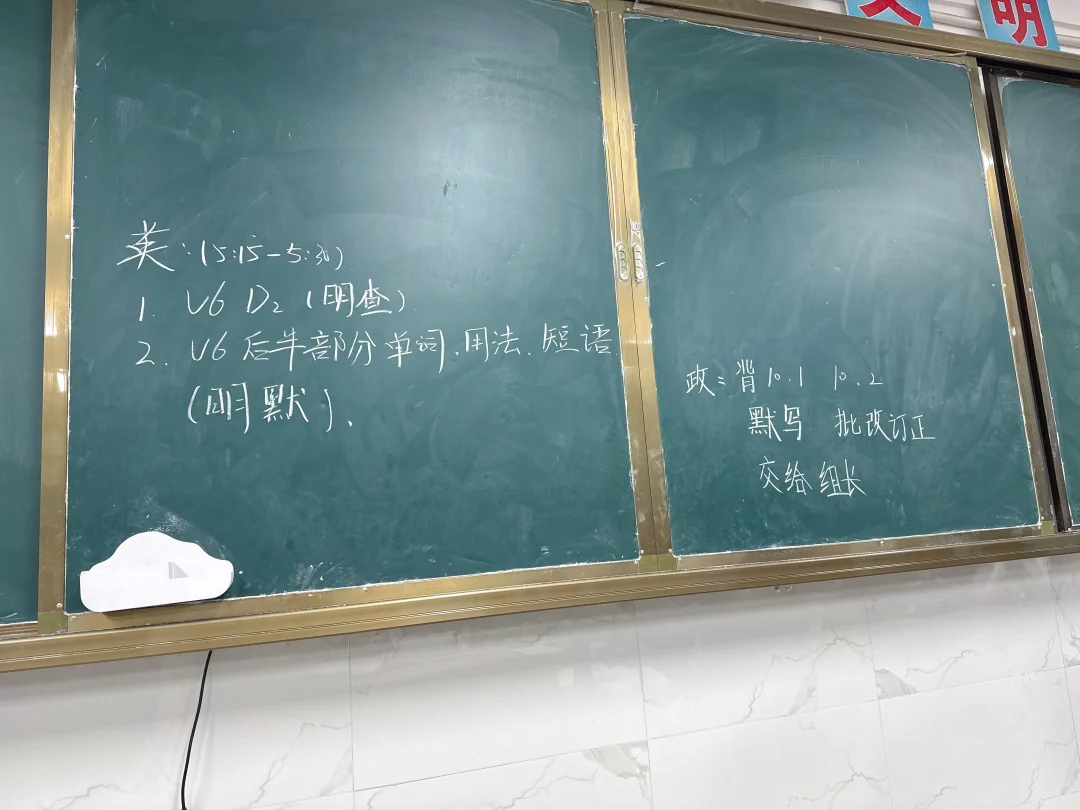 文 明
英:(5:15-5:30)
1. U6 D2 (明查)
2. U6 后半部分单词、用法、短语
(明默).
政:背 10.1 10.2
默写 批改订正
交给组长